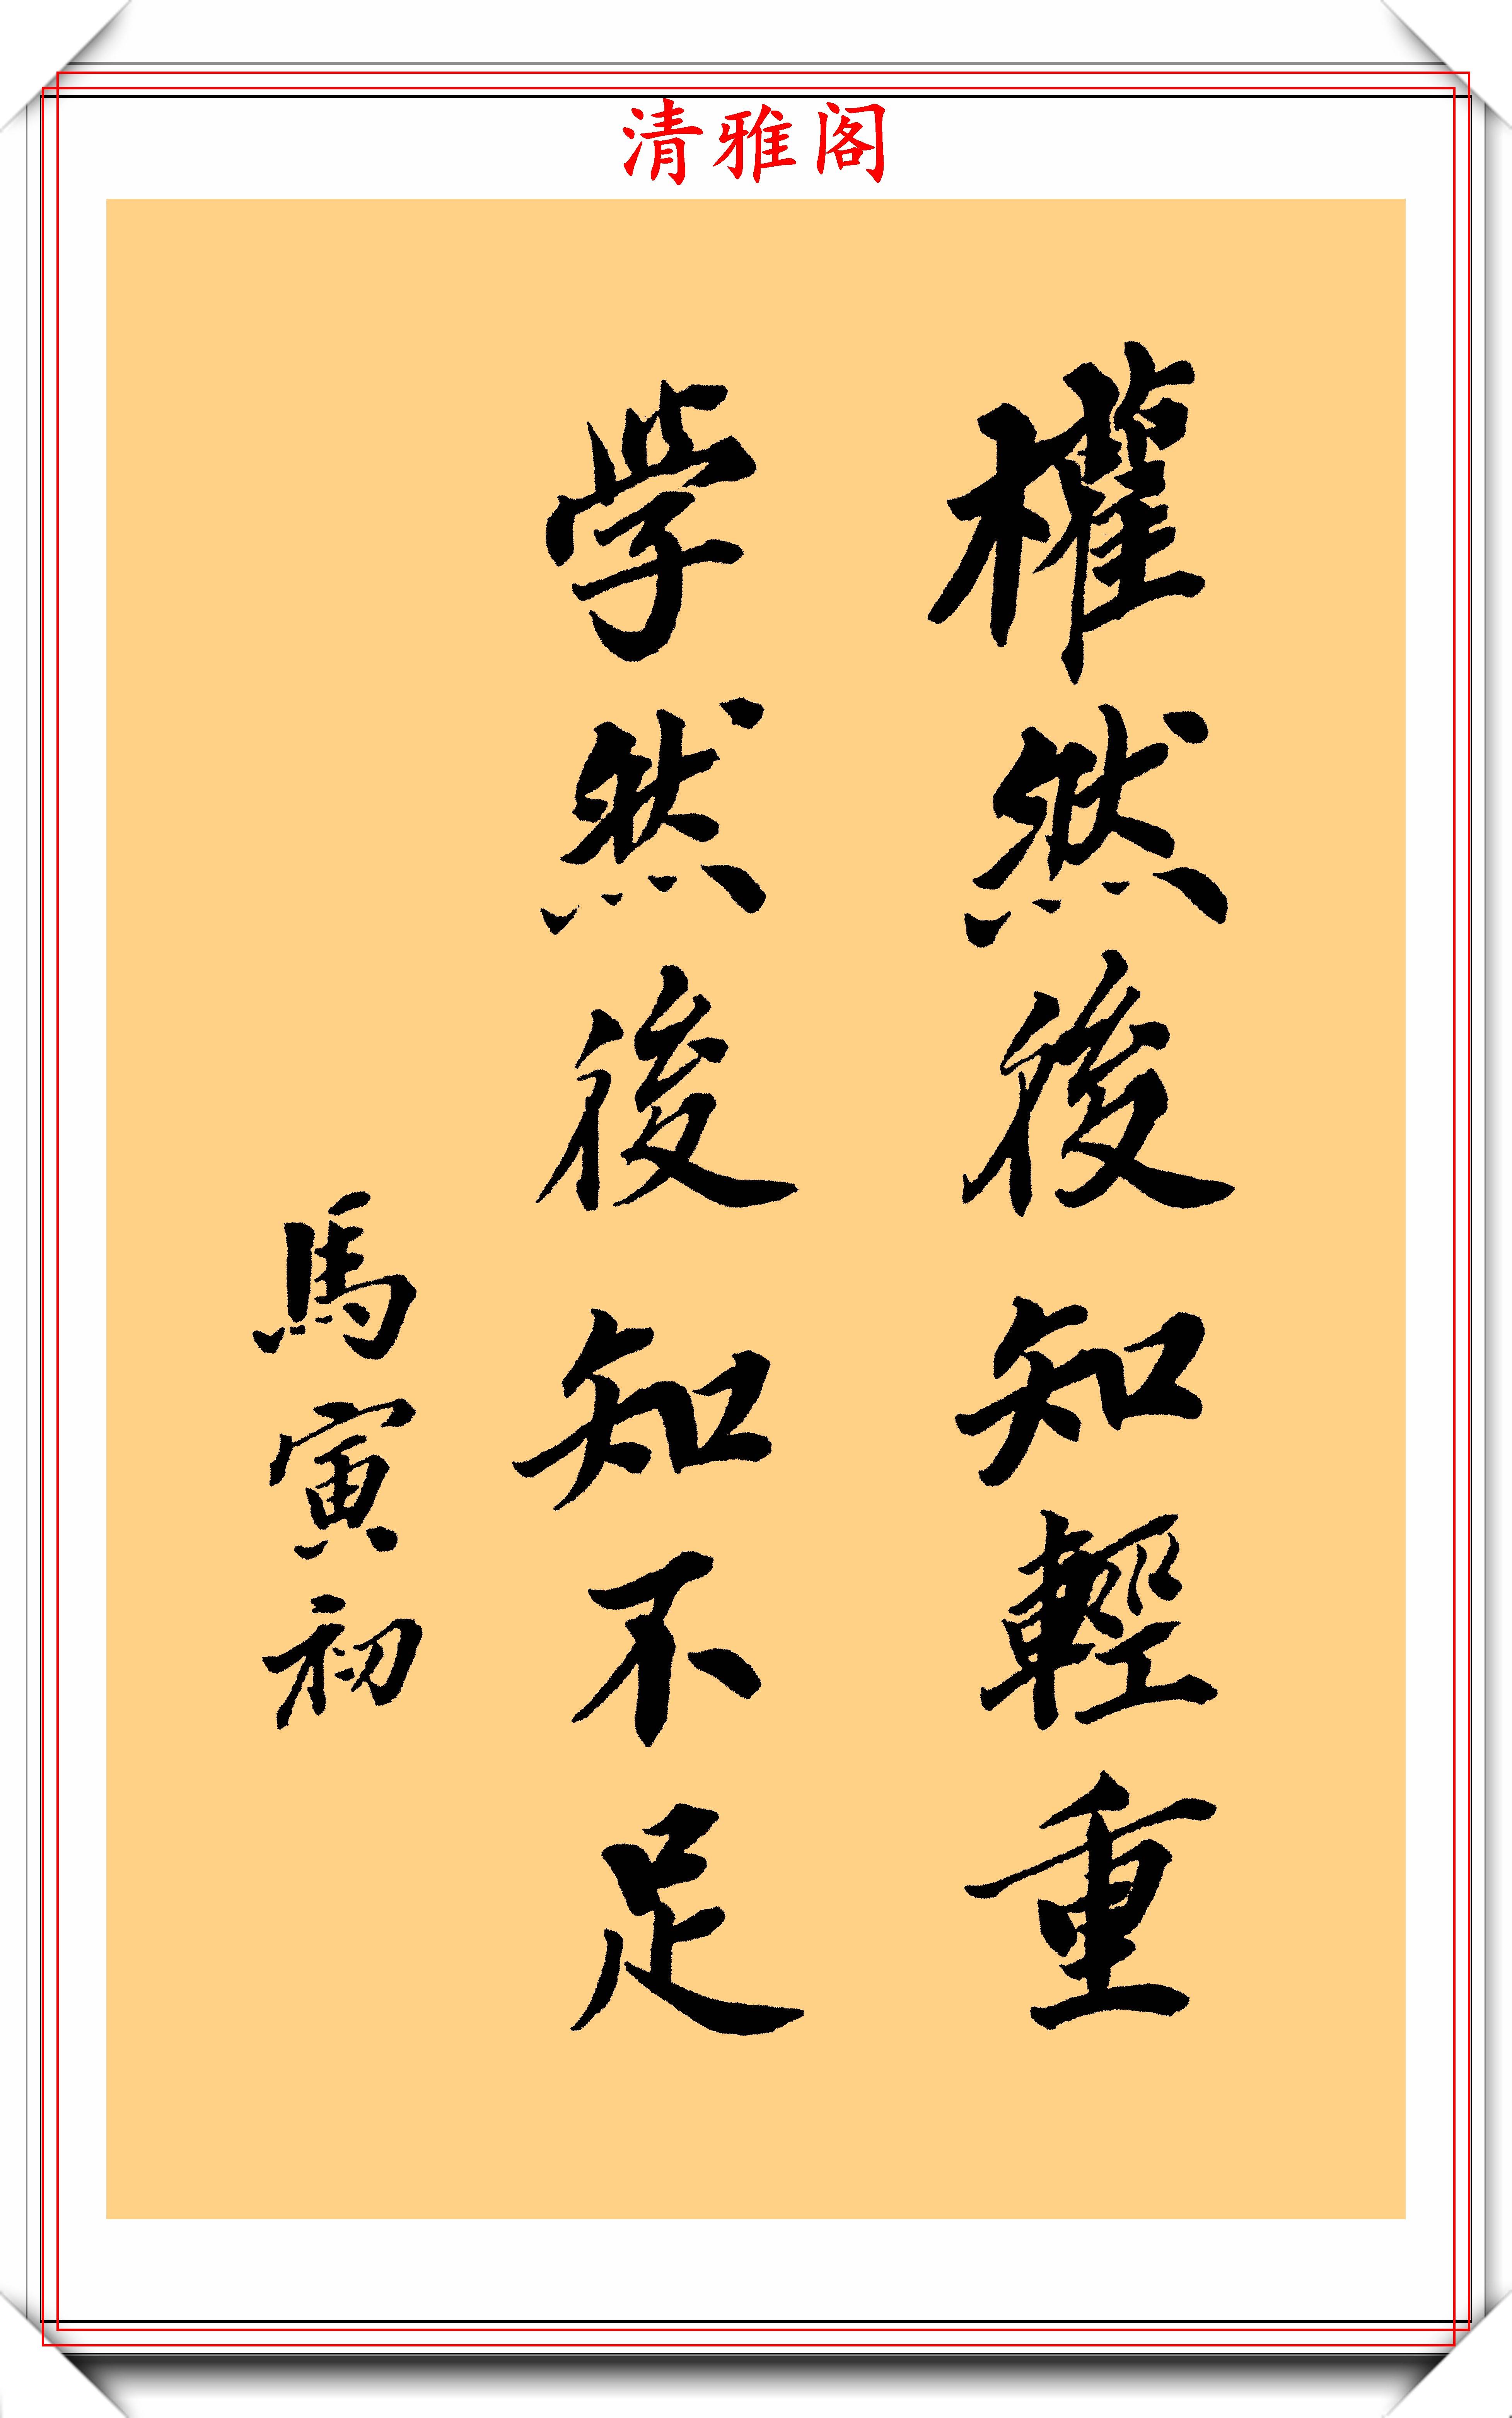 清雅阁
權然後知輕重
学然後知不足
馬寅初